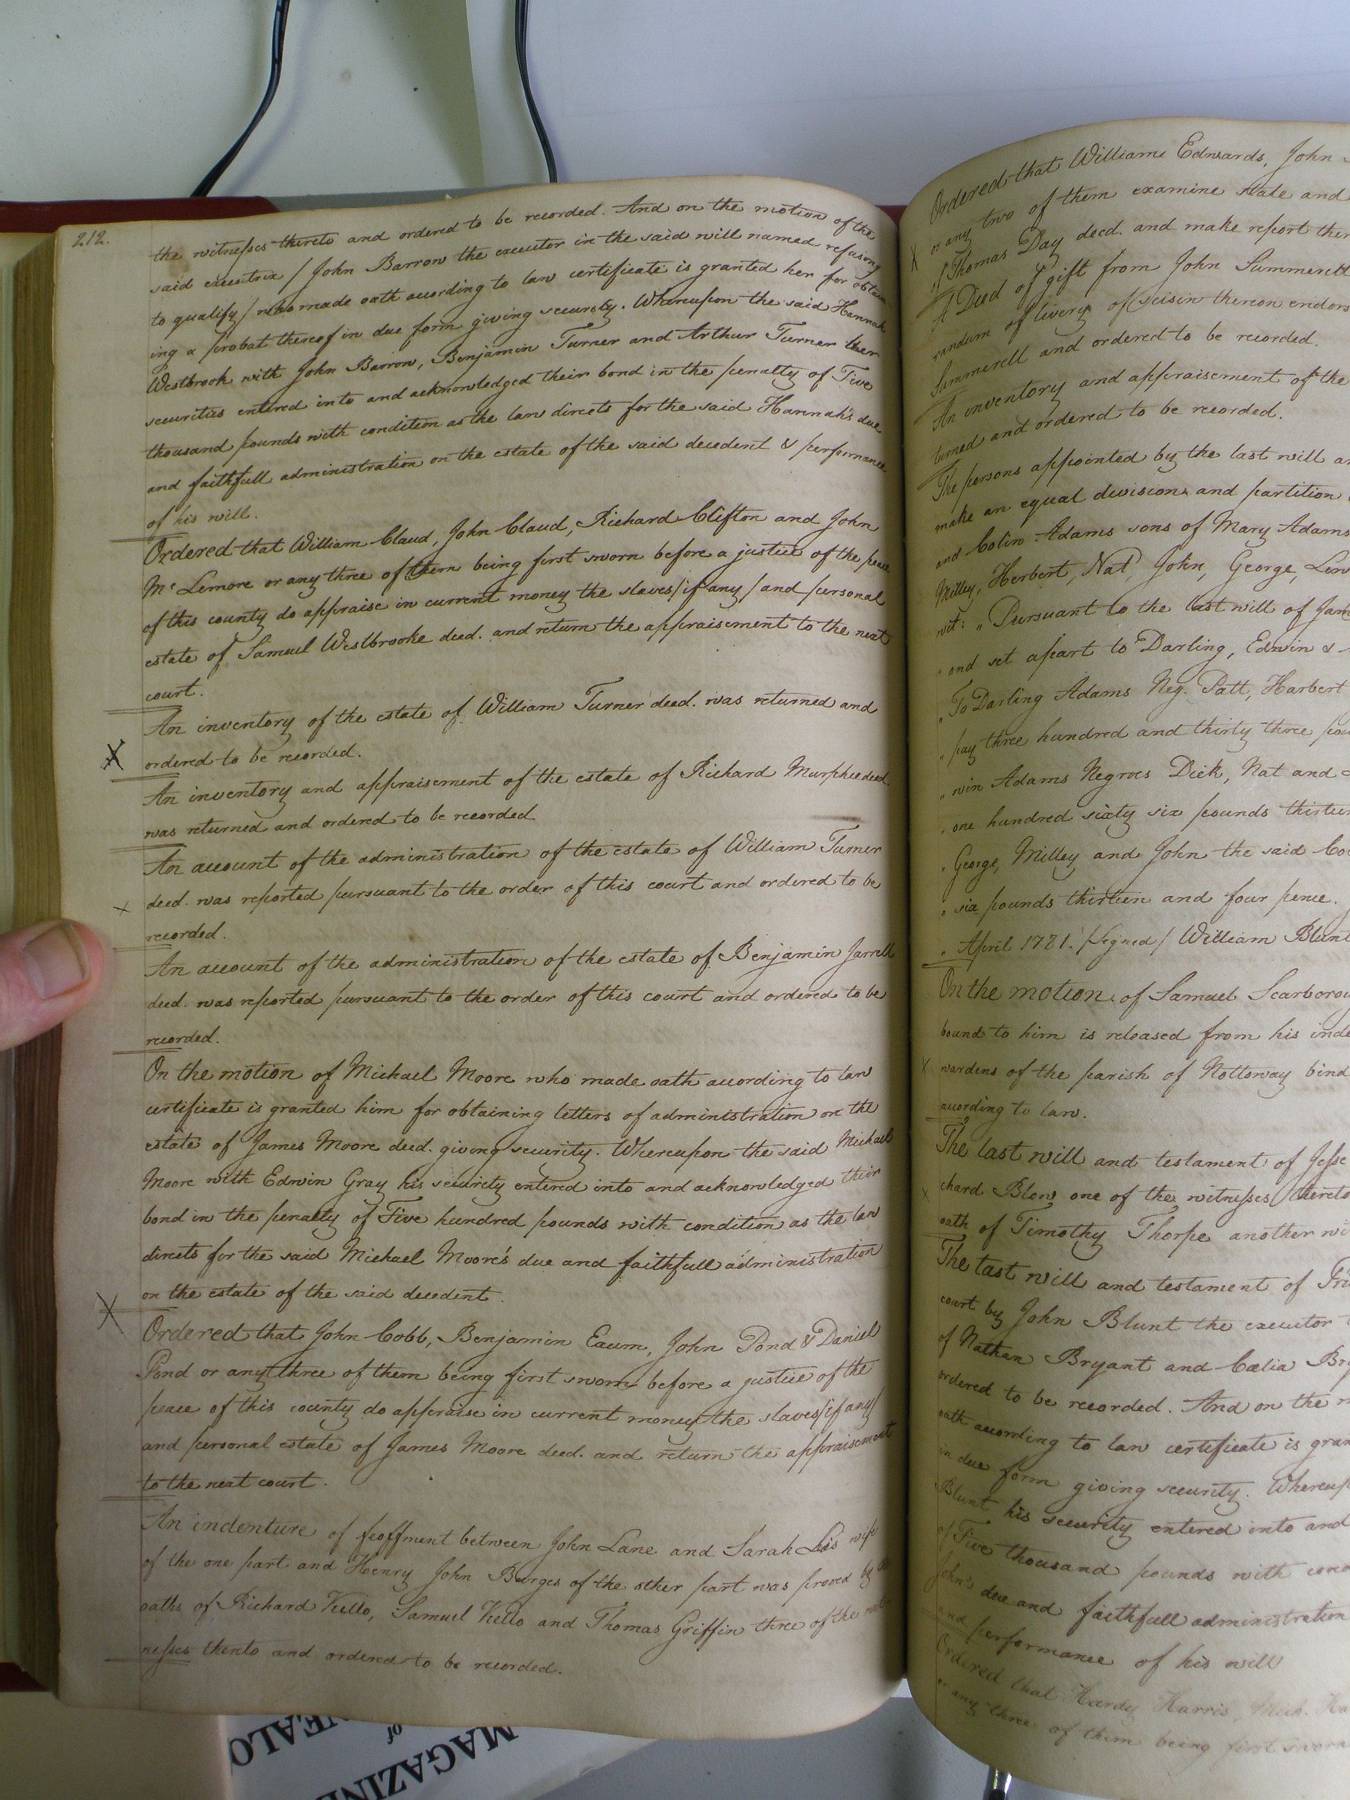 212.
the witnesses thereto and ordered to be recorded. And on the motion of the
said executrix / John Barrow the executor in the said will named refusing
to qualify / who made oath according to law certificate is granted her for obtain
ing a probat thereof in due form giving security. Whereupon the said Hannah
Westbrook with John Barrow, Benjamin Turner and Arthur Turner her
securities entered into and acknowledged their bond in the penalty of Five
thousand pounds with condition as the law directs for the said Hannah's due
and faithfull administration on the estate of the said decedent & performance
of his will.
Ordered that William Claud, John Claud, Richard Clifton and John
Mc Lemore or any three of them being first sworn before a justice of the peace
of this county do appraise in current money the slaves / if any / and personal
estate of Samuel Westbrooke deed. and return the appraisement to the next
court.
An inventory of the estate of William Turner deed. was returned and
X ordered to be recorded.
An inventory and appraisement of the estate of Richard Murphee deed.
was returned and ordered to be recorded
An account of the administration of the estate of William Turner
x deed. was reported pursuant to the order of this court and ordered to be
recorded.
An account of the administration of the estate of Benjamin Jarrell
deed. was reported pursuant to the order of this court and ordered to be
recorded.
On the motion of Michael Moore who made oath according to law
certificate is granted him for obtaining letters of administration on the
estate of James Moore deed. giving security. Whereupon the said Michael
Moore with Edwin Gray his security entered into and acknowledged their
bond in the penalty of Five hundred pounds with condition as the law
directs for the said Michael Moore's due and faithfull administration
on the estate of the said decedent.
X Ordered that John Cobb, Benjamin Exum, John Pond & Daniel
Pond or any three of them being first sworn before a justice of the
peace of this county do appraise in current money the slaves / if any /
and personal estate of James Moore deed. and return the appraisement
to the next court.
An indenture of feoffment between John Lane and Sarah his wife
of the one part and Henry John Burges of the other part was proved by the
oaths of Richard Kello, Samuel Kello and Thomas Griffin three of the wit-
nesses thereto and ordered to be recorded.
Ordered that Williams Edwards, John
X or any two of them examine state and
of Thomas Day deed. and make report ther
A Deed of gift from John Summerell
randum of livery of seisin thereon endors
Summerell and ordered to be recorded.
An inventory and appraisement of the
turned and ordered to be recorded.
The persons appointed by the last will an
make an equal division and partition
and Colin Adams sons of Mary Adams
Milley, Herbert, Nat, John, George, Lew
wit: " Pursuant to the last will of Jam
" and set apart to Darling, Edwin &
" To Darling Adams Neg. Patt, Harbert
" pay three hundred and thirty three pou
" win Adams Negroes Dick, Nat and
" one hundred sixty six pounds thirteen
" George, Milley and John the said Co
" six pounds thirteen and four pence.
" April 1781. / Signed / William Blunt
On the motion of Samuel Scarborou
bound to him is released from his inde
x wardens of the parish of Nottoway bind
according to law.
The last will and testament of Jesse
x chard Blow one of the witnesses thereto
oath of Timothy Thorpe another wi
The last will and testament of
court by John Blunt the executor
of Nathan Bryant and Cælia Bry
ordered to be recorded. And on the m
oath according to law certificate is gran
in due form giving security. Whereup
Blunt his security entered into and
of Five thousand pounds with cond
John's due and faithfull administration
and performance of his will
Ordered that Hardy Harris,
or any three of them being first sworn
MAGAZINE
of
NEALO